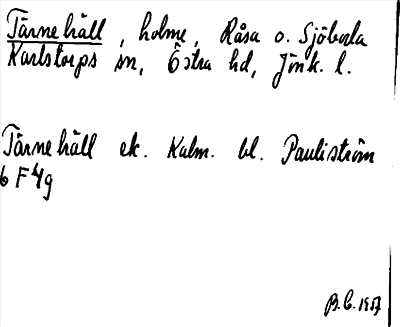 Tärnehäll, holme, Råsa o. Sjöboda
Karlstorps sn, Östra hd, Jönk. l.
Tärnehäll ek. Kalm. bl. Pauliström
6 F 4g
B.C. 1957